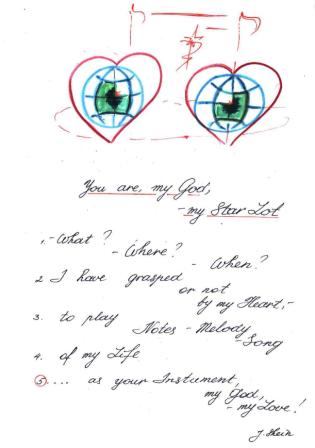 You are, my God,
- my Star Lot
1. - What?
- Where?
- When?
2. I have grasped
or not
by my Heart, -
3. to play
Notes - Melody
- Song
4. of my Life
5. .... as your Instument,
my God,
- my Love!